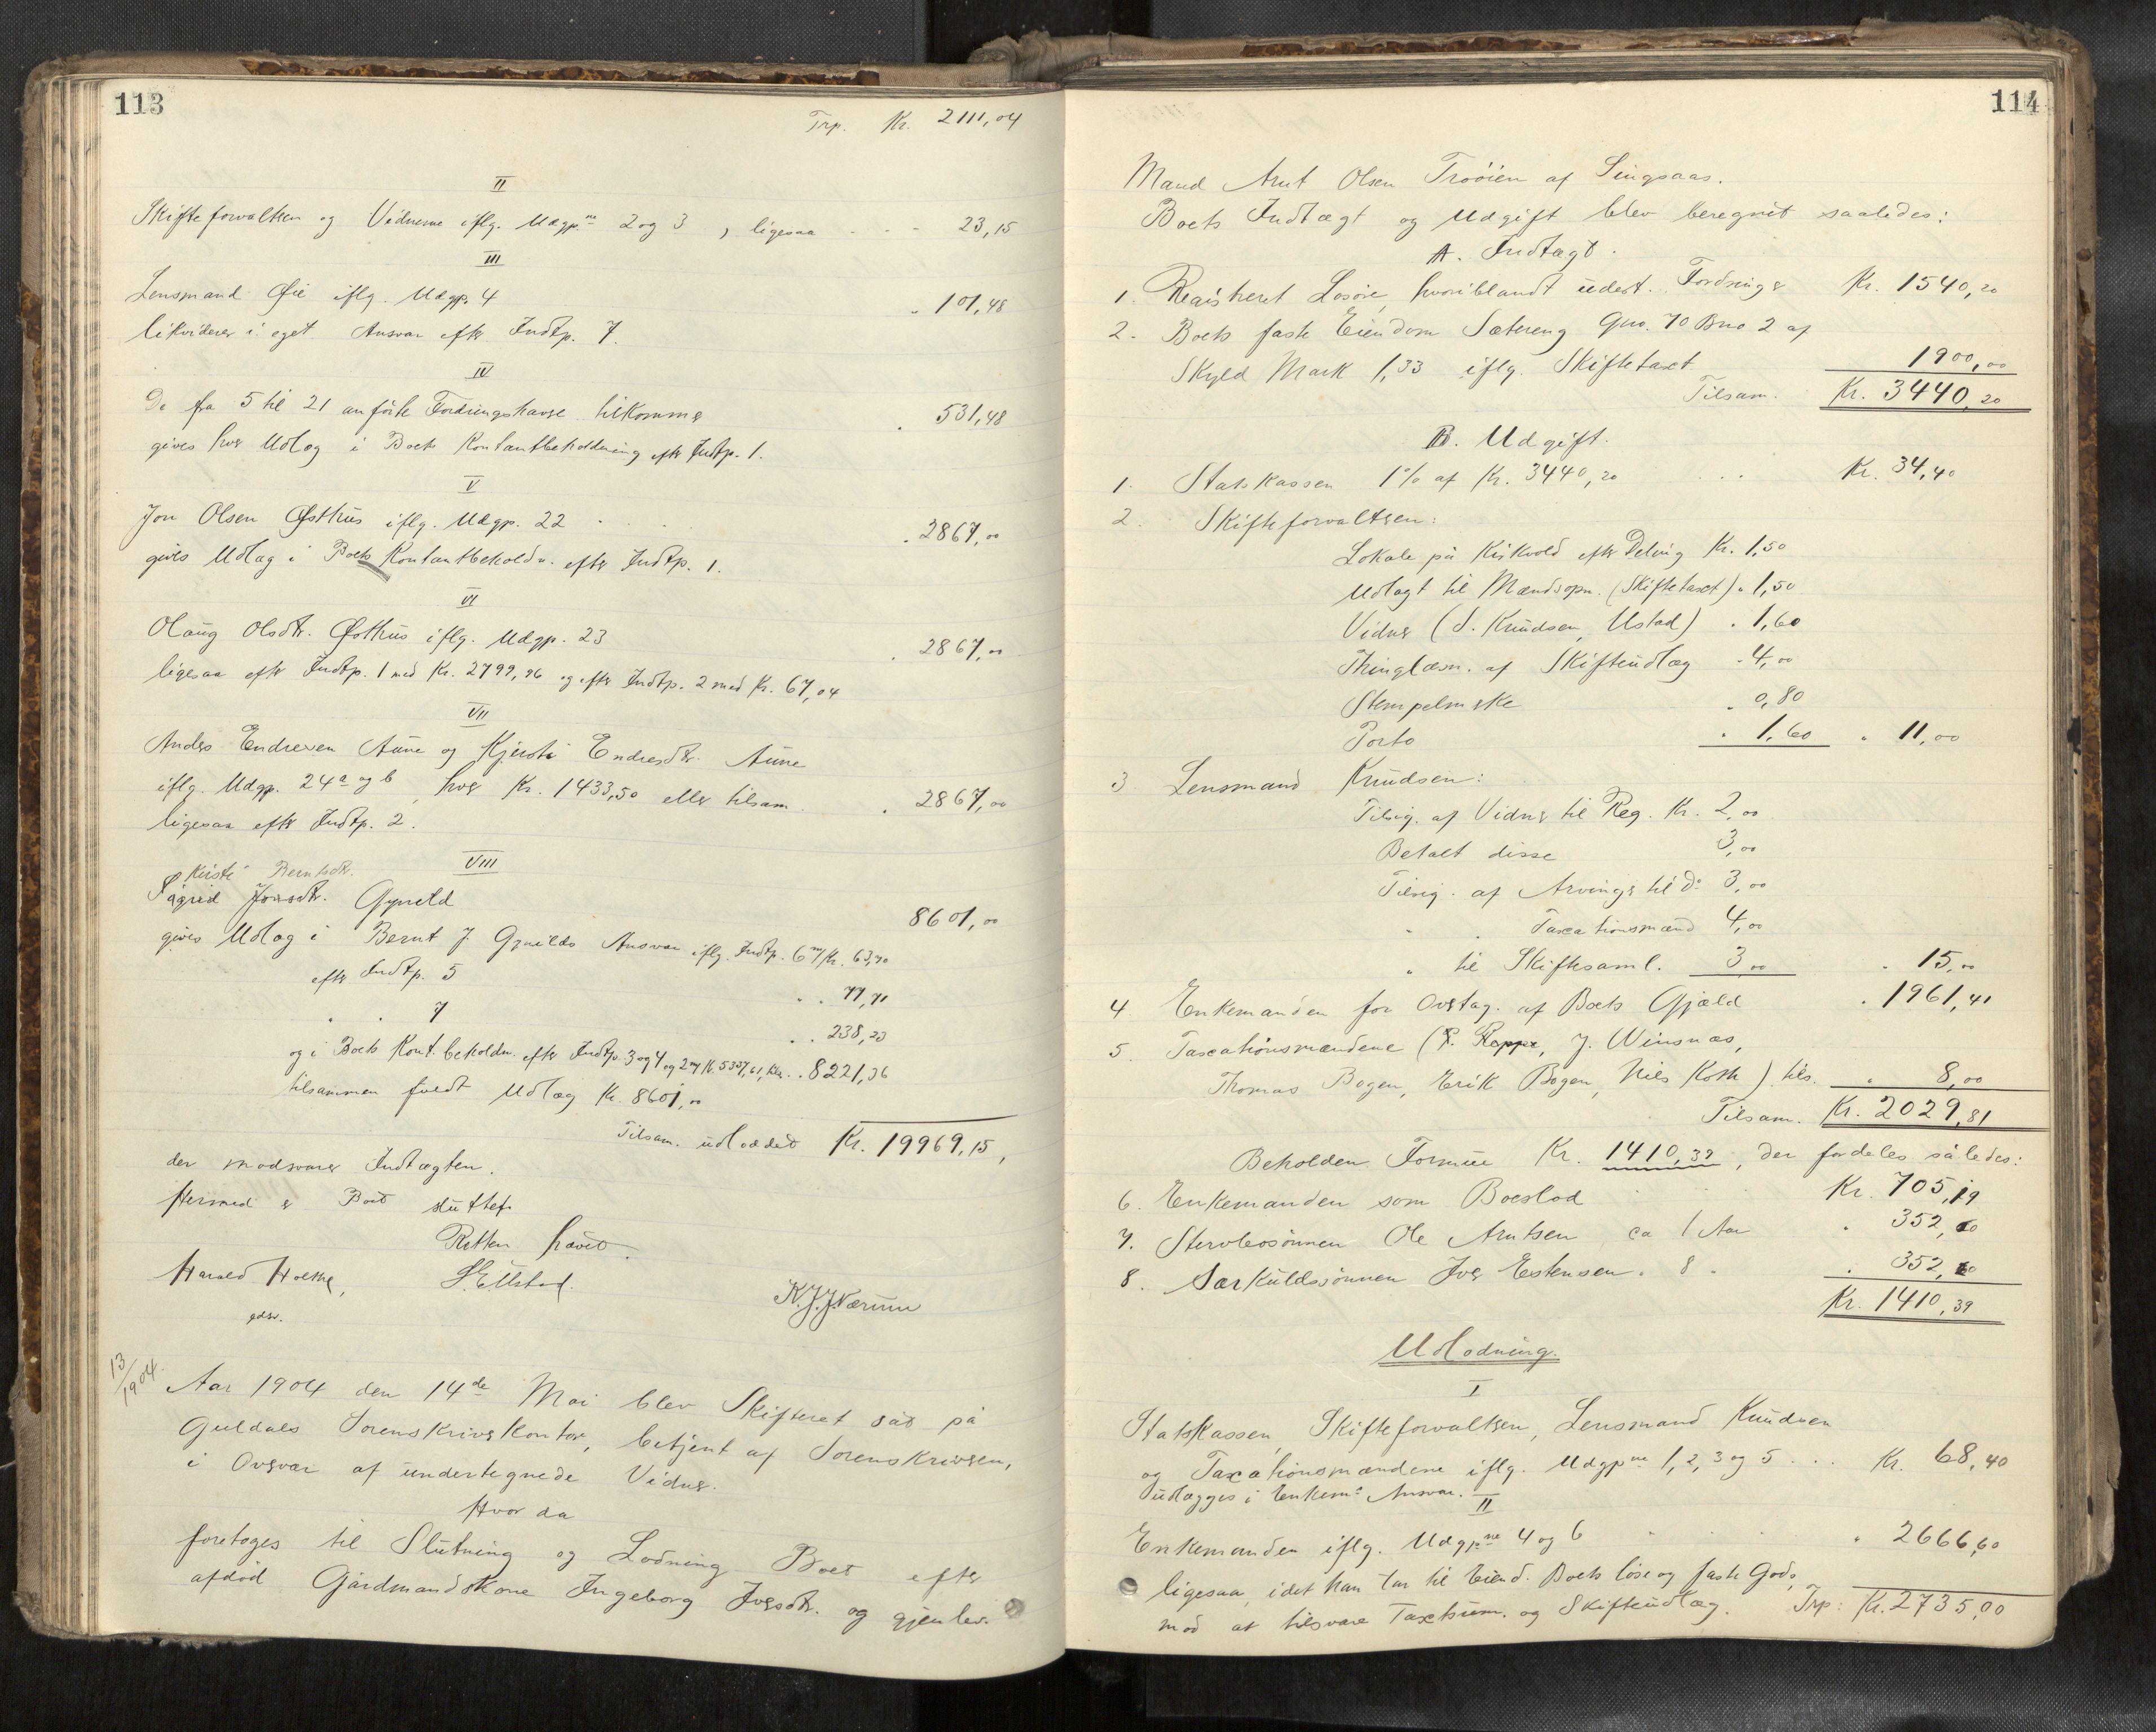 113
Trp. Kr. 2111,04
II
Skifteforvalteren og Vidnerne iflg. Udgpne 2 og 3, ligesaa - - - 23,15
III
Lensmand Øie iflg. Udgp. 4 " 101,48
likviderer i eget Ansvar efter Indtp. 7.
IV
De fra 5 til 21 anførte Fordringshavere tilkommer " 531,48
gives hver Udlæg i Boets Kontantbeholdning efter Indtp. 1.
V
Jon Olsen Østhus iflg. Udgp. 22 . . . " 2867,00
gives Udlæg i Boets Kontantbeholdn. efter Indtp. 1.
VI
Olaug Olsdtr. Østhus iflg. Udgp. 23 " 2867,00
ligesaa efter Indtp. 1 med Kr. 2799,96 og efter Indtp. 2 med Kr. 67,04
VII
Anders Endresen Aune og Kjersti Endresdtr. Aune
iflg. Udgp. 24a og b, hver Kr. 1433,50 eller tilsam. " 2867,00
ligesaa efter Indtp. 2.
VIII
Kirsti Berntsdtr.
Sigrid Jonsdtr. Gynild 8601,00
gives Udlæg i Bernt J. Gynilds Ansvar iflg. Indtp. 6 m/Kr. 63,70
efter Indtp. 5 " " 77,71
" " 7 " " 238,23
og i Boets Kont. beholdn. efter Indtp. 3 og 4 og 2 m/K. 5337,61, " " 8221,36
tilsammen fuldt Udlæg Kr. 8601,00
Tilsam. udloddet Kr. 19969,15,
der modsvarer Indtægten.
Hermed er Boet sluttet.
Retten hævet.
Harald Holthe, S. Ustad. K. J. J. Værum
edsv.
13/1904.
Aar 1904 den 14de Mai blev Skifteret sat på
Guldals Sorenskriverkontor, betjent af Sorenskriveren,
i Overvær af undertegnede Vidner.
Hvor da
foretoges til Slutning og Lodning Boet efter
afdød Gårdmandskone Ingeborg Iversdtr. og gjenlev.
114
Mand Arnt Olsen Trøøien af Singsaas.
Boets Indtægt og Udgift blev beregnet saaledes:
A. Indtægt.
1. Registreret Løsøre, hvoriblandt udest. Fordringer Kr. 1540,20
2. Boets faste Eiendom Sætereng Gno. 70 Bno 2 af
Skyld Mark 1,33 iflg. Skiftetaxt 1900,00
Tilsam. Kr. 3440,20
B. Udgift.
1. Statskassen 1% af Kr. 3440,20 . . . Kr. 34,40
2. Skifteforvalteren:
Lokale på Kirkvold efter Deling Kr. 1,50
Udlagt til Mændsopn. (Skiftetaxt) " 1,50
Vidner (S. Knudsen, Ustad) " 1,60
Thinglæsn. af Skifteudlæg " 4,00
Stempelmærke " 0,80
Porto " 1,60 " 11,00
3. Lensmand Knudsen:
Tilsig. af Vidner til Reg. Kr. 2,00
Betalt disse 3,00
Tilsig. af Arvinger til do 3,00
" " Taxationsmænd 4,00
" til Skiftesaml. 3,00 " 15,00
4. Enkemanden for Overtag. af Boets Gjæld " 1961,41
5. Taxationsmændene (P. Rappe, J. Winsnæs,
Thomas Bogen, Erik Bogen, Nils Koth) tils. " 8,00
Tilsam. Kr. 2029,81
Beholden Formue Kr. 1410,39, der fordeles således:
6. Enkemanden som Boeslod . . . Kr. 705,19
7. Stervbosønnen Ole Arntsen, ca 1 Aar " 352,60
8. Særkuldssønnen Iver Estensen " 8 " " 352,60
Kr. 1410,39
Udlodning.
I
Statskassen, Skifteforvalteren, Lensmand Knudsen
og Taxationsmændene iflg. Udgpne 1, 2, 3 og 5 . . . Kr. 68,40
udlægges i Enkems Ansvar.
II
Enkemanden iflg. Udgpne 4 og 6 . . . " 2666,60
ligesaa, idet han tar til Eiend. Boets løse og faste Gods,
mod at tilsvare Taxtsum. og Skifteudlæg. Trp: Kr. 2735,00